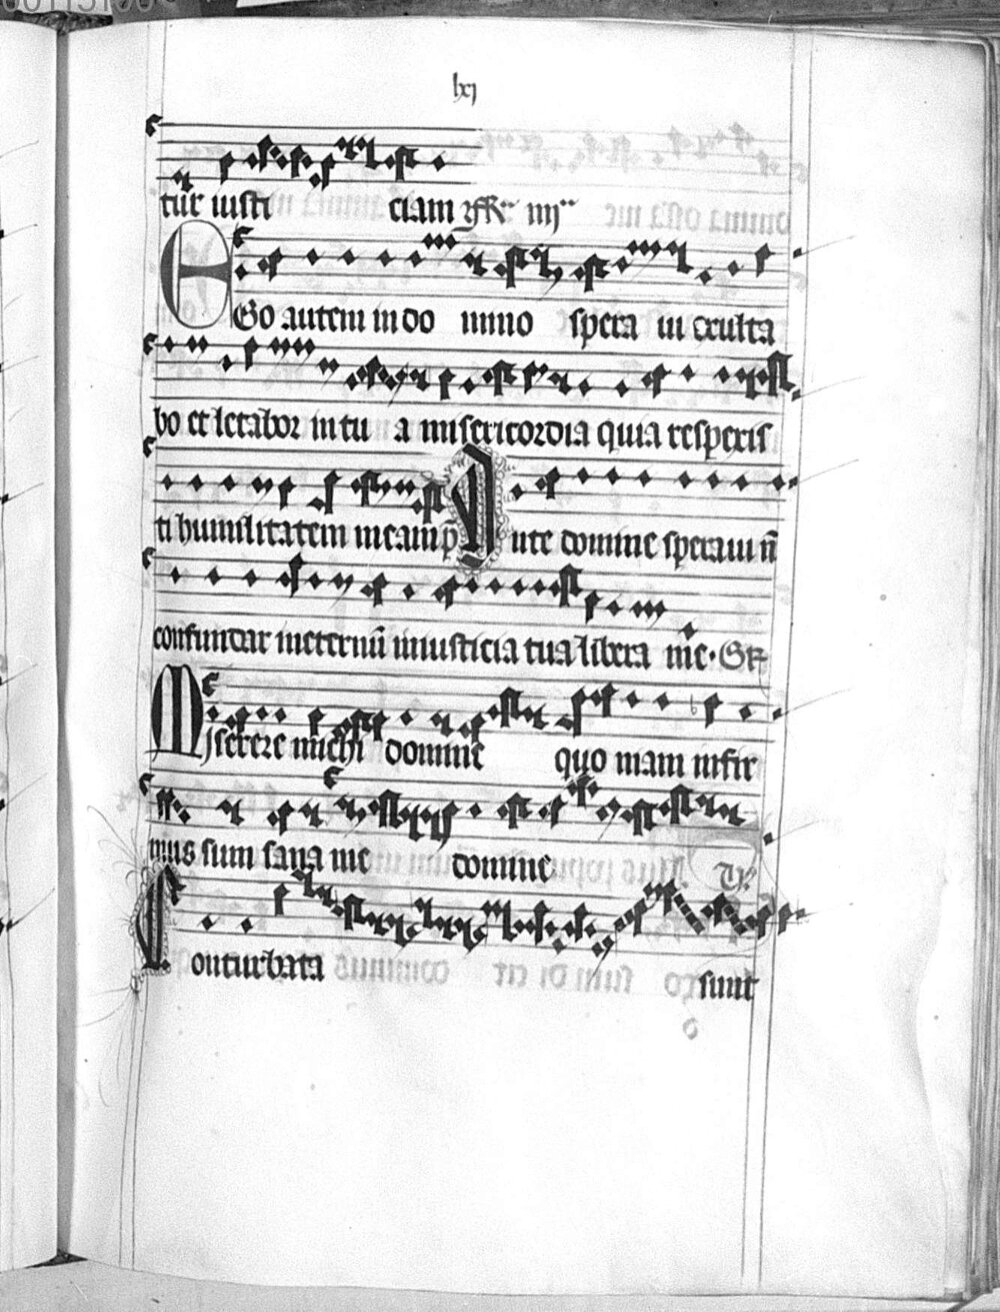 lxj
tur iusti ciam
EGo autem in do mino spera ui exulta
bo et letabor in tu a misericordia quia respexis
ti humilitatem meam p̄ IN te domine speraui n̄
confundar ineternū iniusticia tua libera me. GR
Miserere michi domine quo niam infir
mus sum sana me domine
Conturbata sunt